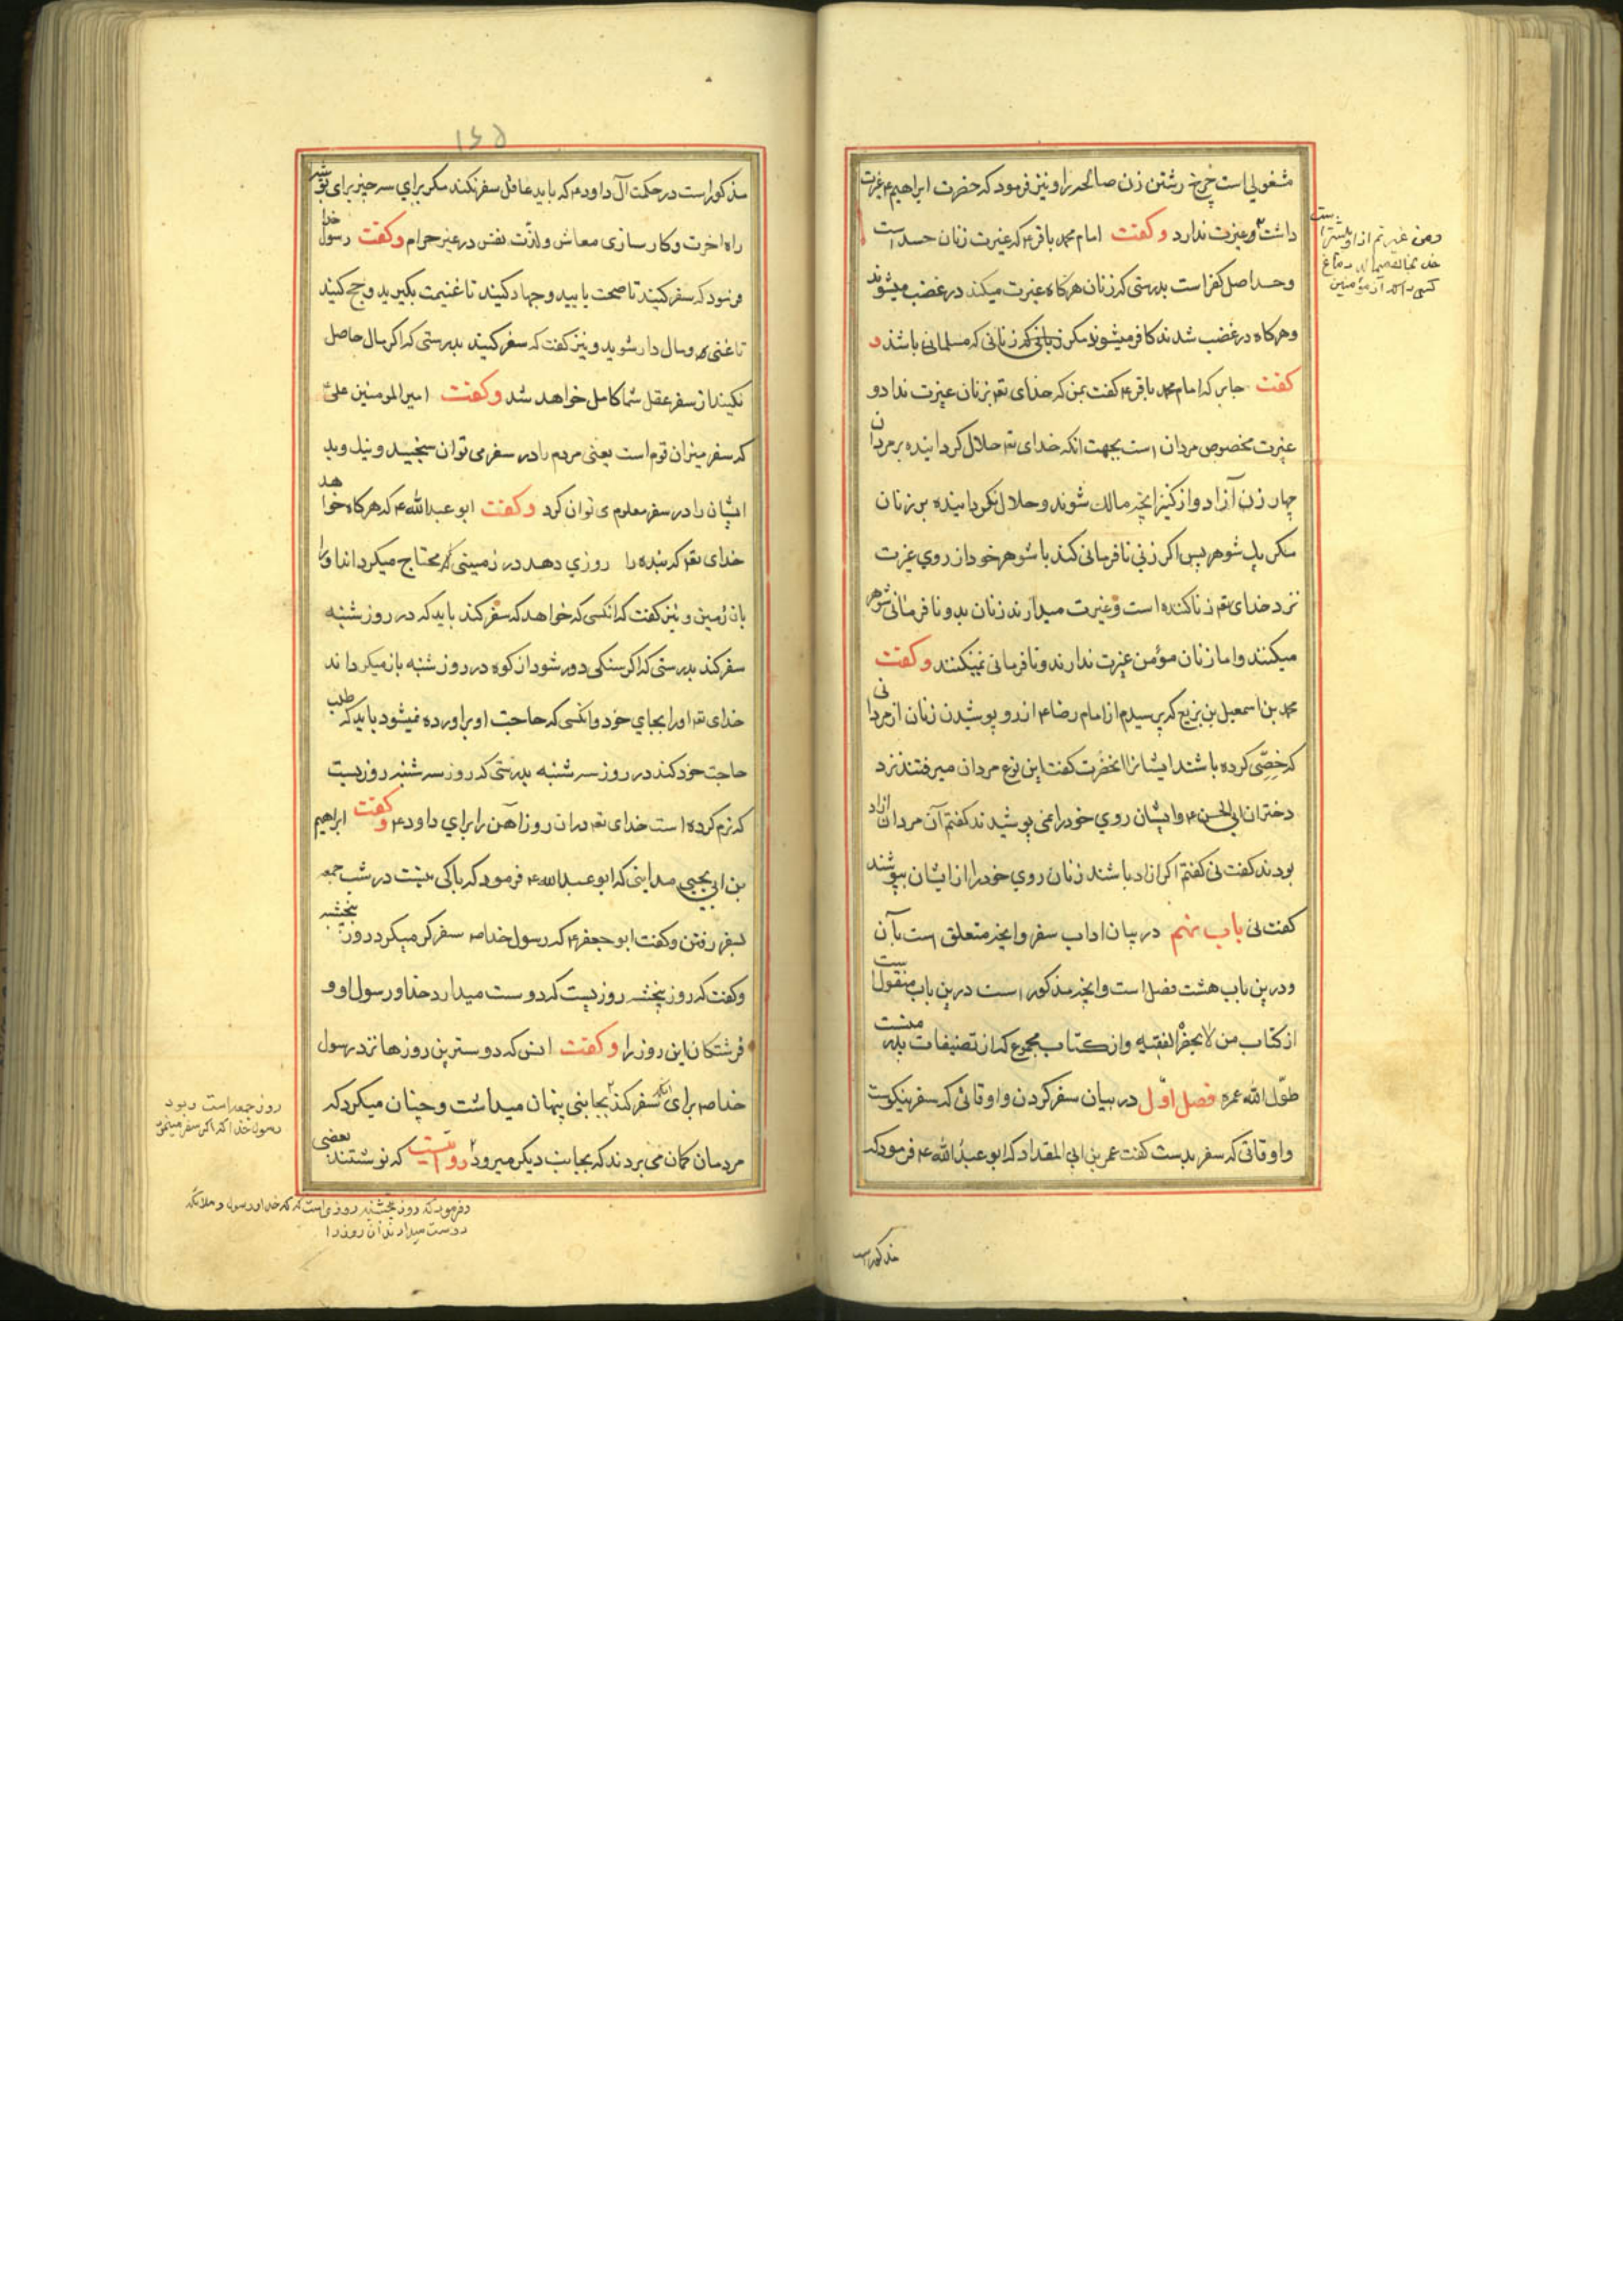 مشغولی است چرخ رشتن زن صالحه را و نیز فرمود که حضرت ابراهیم ع غیرت
داشت و غیرت ندارد و کفت امام محمد باقر ع که غیرت زنان حسد است
و حسد اصل کفر است بدرستی که زنان هرکاه غیرت میکند در غضب میشوند
و هرکاه در غضب شدند کافر میشوند مکر زنانی که مسلمانی باشد و
کفت جابر که امام محمد باقر ع کفت بمن که خدای تعم بزنان غیرت نداد و
غیرت مخصوص مردان است بجهت انکه خدای تعم حلال کردانیده بر مردان
چهار زن آزاد و از کنیز انچه مالک شوند و حلال نکردانیده بر زنان
مکر یک شوهر پس اکر زنی نافرمانی کند با شوهر خود از روی غیرت
نزد خدای تعم زناکننده است و غیرت میدارند زنان بد و نافرمانی شوهر
میکنند و اما زنان مؤمن غیرت ندارند و نافرمانی نمیکنند و کفت
محمد بن اسمعیل بن بزیع که پرسیدم از امام رضا ع از رو پوشیدن زنان از مردانی
که خصی کرده باشند ایشانرا انحضرت کفت این نوع مردان میرفتند نزد
دختران ابی الحسن ع و ایشان روی خود را نمی پوشیدند کفتم آن مردان ازاد
بودند کفت نی کفتم اکر ازاد باشند زنان روی خود را از ایشان بپوشند
کفت نی باب نهم در بیان اداب سفر و انچه متعلق است بآن
و درین باب هشت فصل است و انچه مذکور است درین باب منقول است
از کتاب من لا یحضره الفقیه و از کتاب مجموع که از تصنیفات پدر منست
طول الله عمره فصل اول در بیان سفر کردن و اوقاتی که سفر نیکوست
و اوقاتی که سفر بدست کفت عمر بن ابی المقداد که ابو عبد الله ع فرمود که
و من غیرتم از او بیشتر است
کسی را که از مؤمنین
مذکور است
۱۴۵
مذکور است در حکمت آل داود ع که باید عاقل سفر نکند مکر برای سه چیز برای توشه
راه اخرت و کارسازی معاش و لذت نفس در غیر حرام و کفت رسول خدا
فرمود که سفر کنید تا صحت یابید و جهاد کنید تا غنیمت بکیرید و حج کنید
تا غنی و مال دار شوید و نیز کفت که سفر کنید بدرستی که اکر مال حاصل
نکنید از سفر عقل شما کامل خواهد شد و کفت امیر المومنین علی
که سفر میزان قوم است یعنی مردم را در سفر می توان سنجید و نیک و بد
ایشان را در سفر معلوم می توان کرد و کفت ابو عبد الله ع که هرکاه خواهد
خدای تعم که بنده را روزی دهد در زمینی محتاج میکرداند او را
بان زمین و نیز کفت که انکسی که خواهد که سفر کند باید که در روز شنبه
سفر کند بدرستی که اکر سنکی دور شود از کوه در روز شنبه باز میکرداند
خدای تعم او را بجای خود و انکسی که حاجت او براورده نمیشود باید که طلب
حاجت خود کند در روز سه شنبه بدرستی که روز سه شنبه روزیست
که نرم کرده است خدای تعم دران روز آهن را برای داود ع و کفت ابراهیم
بن ابی یحیی مداینی که ابو عبد الله ع فرمود که باکی نیست در شب جمعه
بسفر رفتن و کفت ابو جعفر ع که رسول خدا صم سفر کر میکرد روز پنجشنبه
و کفت که روز پنجشنبه روزیست که دوست میدارد خدا و رسول او و
فرشتکان این روز را و کفت انس که دوسترین روزها نزد رسول
خدا صم برای انکه سفر کند بجانبی پنهان میداشت و چنان میکرد که
مردمان کمان می بردند که بجانب دیکر میرود روایت که نوشتند بعضی
روز جمعه است و بود
رسول خدا که اکر سفر میکرد
و فرمود که روز پنجشنبه روزی است که خدا و رسول و ملائکه
دوست میدارند آن روز را